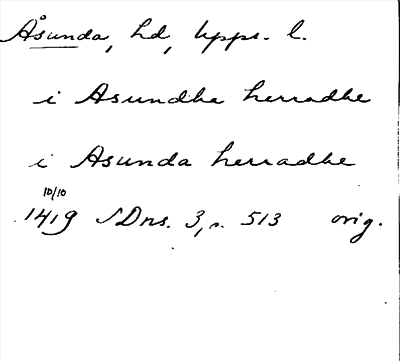 Åsunda, hd, Upps. l.
i Asundha herradhe
i Asunda herradhe
10/10
1419 SDns. 3, s. 513 orig.